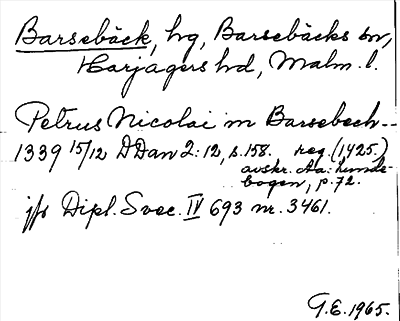 Barsebäck, hg, Barsebäcks sn,
Harjagers hd, Malm. l.
Petrus Nicolai in Barsebech--
1339 15/12 DDan 2:12, s.158. reg. (1425)
avskr. Aa: Lunde-
bogen, p.72.
jfr Dipl. Svec. IV 693 nr. 3461.
G.E. 1965.